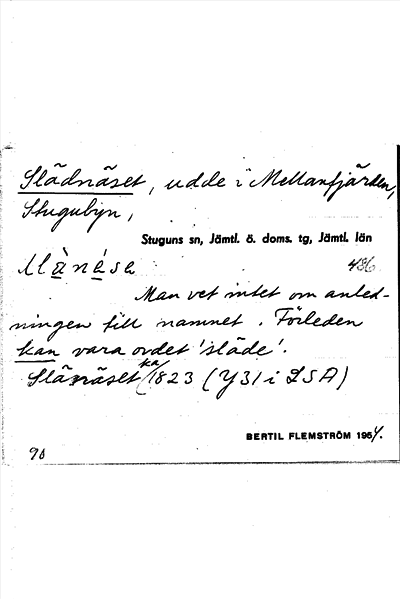 Slädnäset, udde i Mellanfjärden,
Stugubyn,
Stuguns sn, Jämtl. ö. doms. tg, Jämtl. län
486
Man vet intet om anled-
ningen till namnet. Förleden
kan vara ordet 'släde'.
Slänäset ka/1823 (Y31 i LSA)
BERTIL FLEMSTRÖM 1954.
90